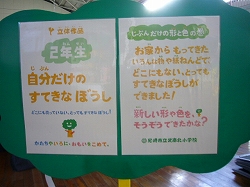 立体作品
2年生
じぶん
自分だけの
すてきなぼうし
どこにもたっていない、とってもすてきなぼうし!
かたちやいろに、おもいをこめて。
じぶんだけの形と色の
お家からもってきた
いろいろな材料やねんどで、
どこにもない、とっても
すてきなぼうしが
できました!
新しい形や色を、
そうぞうできたかな?